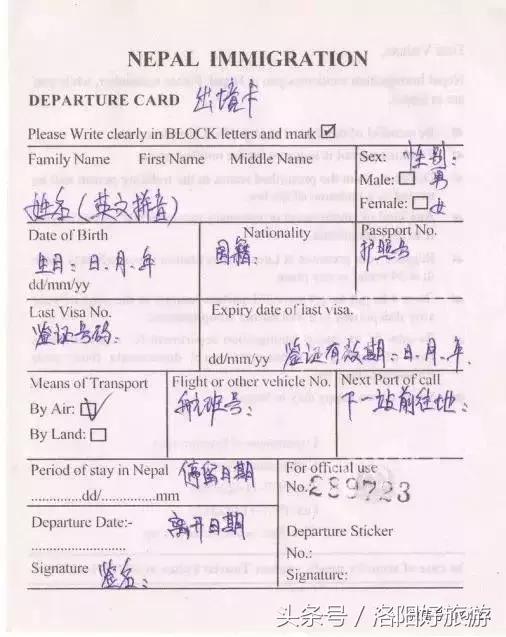 NEPAL IMMIGRATION
DEPARTURE CARD 出境卡
Please Write clearly in BLOCK letters and mark ☑
Family Name First Name Middle Name
姓名(英文拼音)
Sex: 性别:
Male: ☐ 男
Female: ☐ 女
Date of Birth
生日:日.月.年
dd/mm/yy
Nationality
国籍:
Passport No.
护照号
Last Visa No.
签证号码:
Expiry date of last visa.
dd/mm/yy 签证有效期:日.月.年.
Means of Transport
By Air: ☑
By Land: ☐
Flight or other vehicle No.
航班号:
Next Port of call
下一站前往地:
Period of stay in Nepal 停留日期
..............dd/..............mm
For official use
No. £89723
Departure Date:- 离开日期
........................
Departure Sticker
No.:
Signature:
Signature 签名:
头条号 / 洛阳好旅游